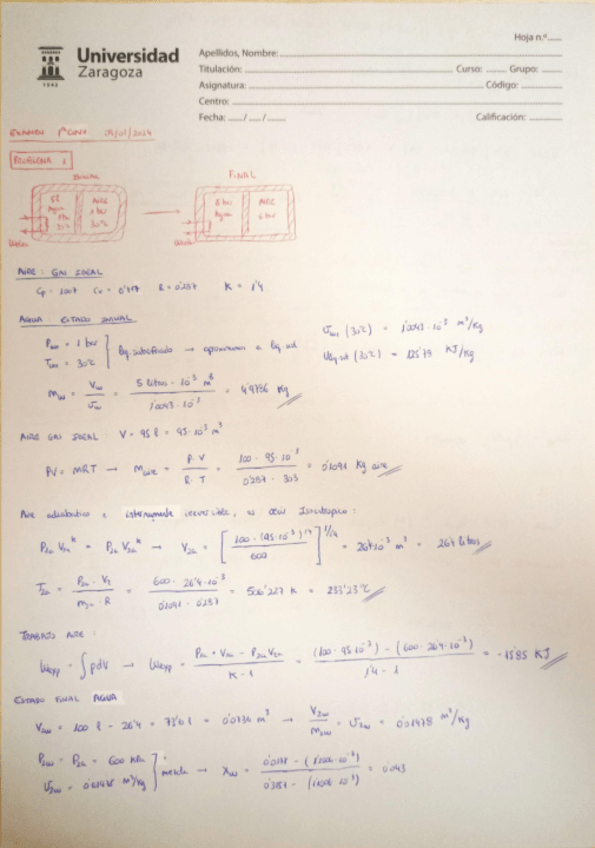 Hoja n.º
Universidad
Zaragoza
1542
Apellidos, Nombre:
Titulación: Curso: Grupo:
Asignatura: Código:
Centro:
Fecha: / / Calificación:
EXAMEN 1ª CONV 09/01/2024
PROBLEMA 1
INICIAL FINAL
5l Agua 1 bar 30ºC
AIRE 1 bar 30ºC
6 bar Agua
AIRE 6 bar
AIRE: GAS IDEAL
Cp = 1'007 Cv = 0'717 R = 0'287 K = 1'4
AGUA: ESTADO INICIAL
P1w = 1 bar
T1w = 30ºC
liq. subenfriado → aproximamos a liq. sat
v1w (30ºC) = 1'0043·10⁻³ m³/Kg
uliq.sat (30ºC) = 125'79 KJ/Kg
mw = Vw / vw = 5 litros · 10⁻³ m³ / 1'0043·10⁻³ = 4'9786 Kg
AIRE GAS IDEAL: V = 95 l = 95·10⁻³ m³
PV = MRT → Maire = P·V / R·T = 100 · 95·10⁻³ / 0'287 · 303 = 0'1091 Kg aire
Aire adiabático e internamente reversible, es decir Isentrópico:
P1a V1aᵏ = P2a V2aᵏ → V2a = [100 · (95·10⁻³)^1'4 / 600]^1/1'4 = 26'4·10⁻³ m³ = 26'4 litros
T2a = P2a · V2 / m2a · R = 600 · 26'4·10⁻³ / 0'1091 · 0'287 = 506'227 K = 233'23ºC
TRABAJO AIRE:
Wexp = ∫pdV → Wexp = P1a · V1a - P2a V2a / K - 1 = (100 · 95·10⁻³) - (600 · 26'4·10⁻³) / 1'4 - 1 = -15'85 KJ
ESTADO FINAL AGUA
V2w = 100 l - 26'4 = 73'6 l = 0'0736 m³ → V2w / m2w = v2w = 0'01478 m³/Kg
P2w = P2a = 600 kPa
v2w = 0'01478 m³/Kg
mezcla → Xw = 0'0148 - (1'1006·10⁻³) / 0'3157 - (1'1006·10⁻³) = 0'043